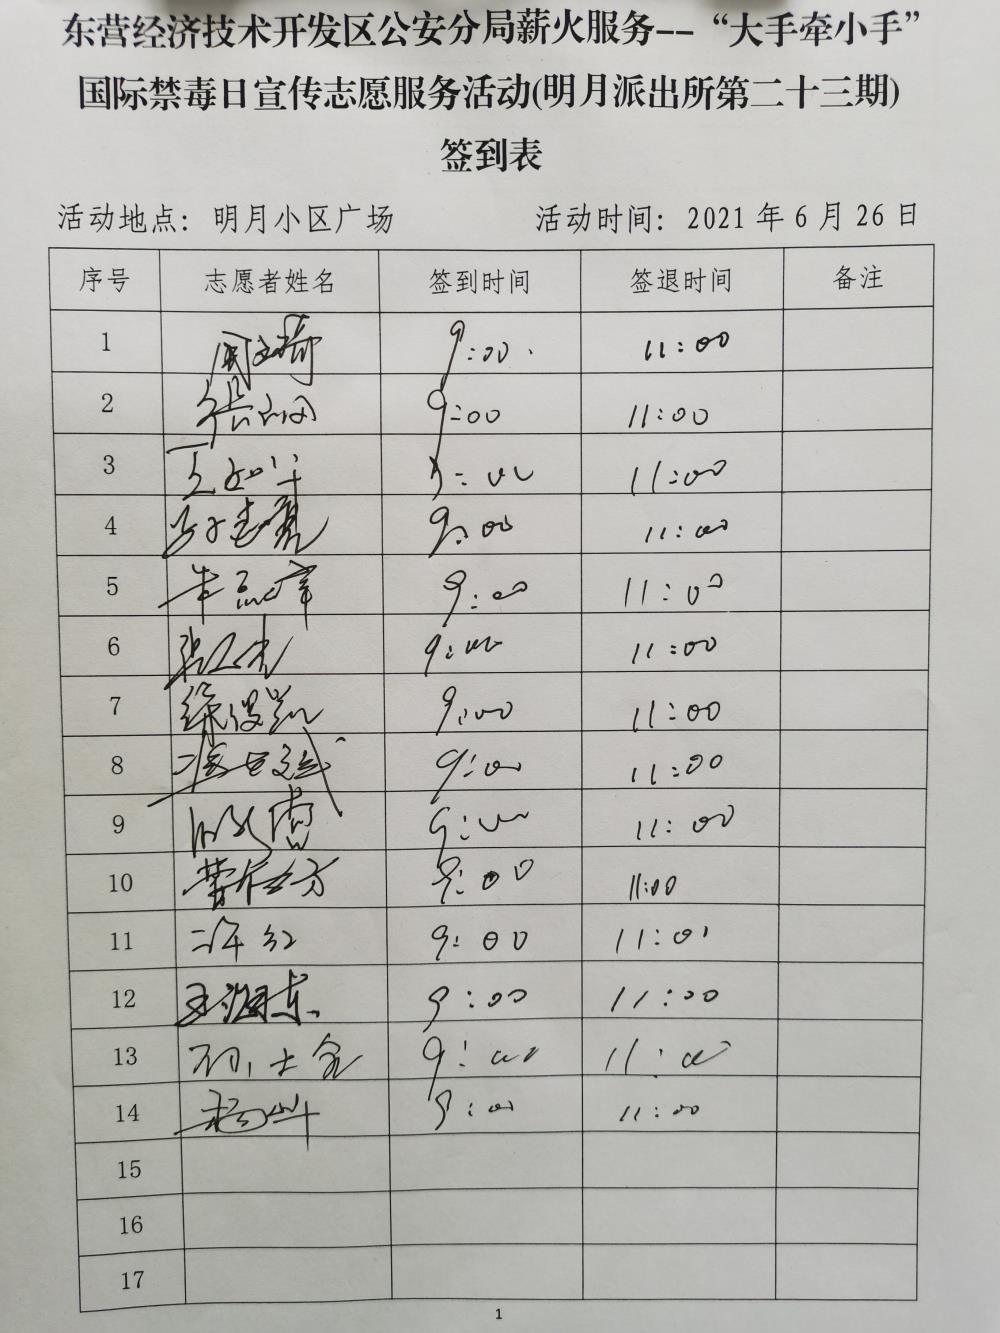 东营经济技术开发区公安分局薪火服务--“大手牵小手”
国际禁毒日宣传志愿服务活动(明月派出所第二十三期)
签到表
活动地点：明月小区广场 活动时间：2021年6月26日
序号 志愿者姓名 签到时间 签退时间 备注
1 9:00 11:00
2 9:00 11:00
3 9:00 11:00
4 9:00 11:00
5 9:00 11:00
6 9:00 11:00
7 9:00 11:00
8 9:00 11:00
9 9:00 11:00
10 9:00 11:00
11 许红 9:00
12 9:00 11:00
13 9:00 11:00
14 杨华 9:00 11:00
15
16
17
1